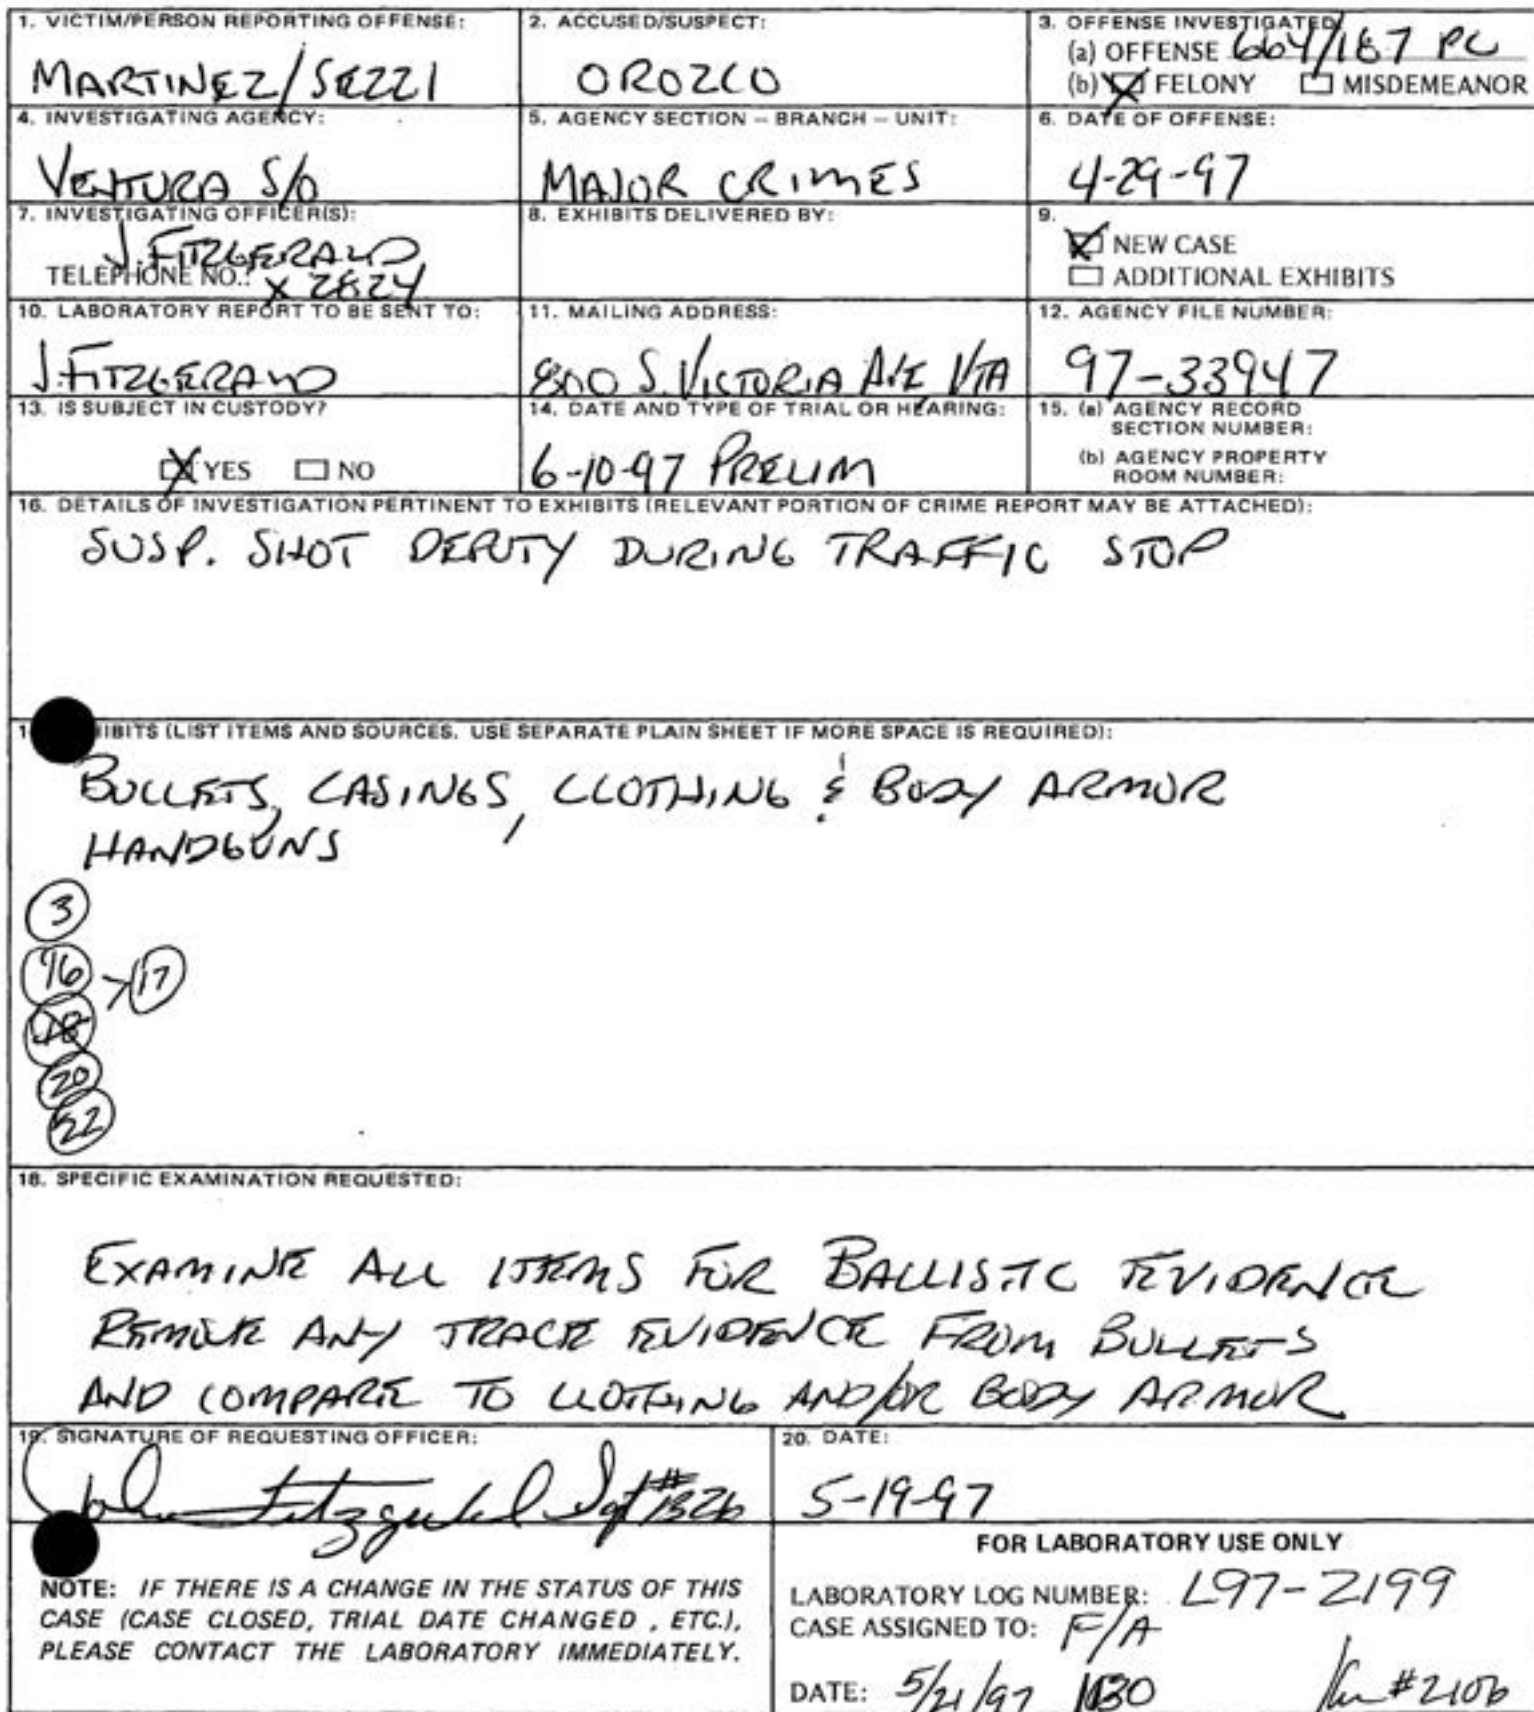 1. VICTIM/PERSON REPORTING OFFENSE:
MARTINEZ/SEZZI
2. ACCUSED/SUSPECT:
OROZCO
3. OFFENSE INVESTIGATED
(a) OFFENSE 664/187 PC
(b) FELONY MISDEMEANOR
4. INVESTIGATING AGENCY:
VENTURA S/O
5. AGENCY SECTION – BRANCH – UNIT:
MAJOR CRIMES
6. DATE OF OFFENSE:
4-29-97
7. INVESTIGATING OFFICER(S):
J. FITZGERALD
TELEPHONE NO.: x 2824
8. EXHIBITS DELIVERED BY:
9.
NEW CASE
ADDITIONAL EXHIBITS
10. LABORATORY REPORT TO BE SENT TO:
J. FITZGERALD
11. MAILING ADDRESS:
800 S. VICTORIA AVE VTA
12. AGENCY FILE NUMBER:
97-33947
13. IS SUBJECT IN CUSTODY?
YES NO
14. DATE AND TYPE OF TRIAL OR HEARING:
6-10-97 PRELIM
15. (a) AGENCY RECORD
SECTION NUMBER:
(b) AGENCY PROPERTY
ROOM NUMBER:
16. DETAILS OF INVESTIGATION PERTINENT TO EXHIBITS (RELEVANT PORTION OF CRIME REPORT MAY BE ATTACHED):
SUSP. SHOT DEPUTY DURING TRAFFIC STOP
IBITS (LIST ITEMS AND SOURCES. USE SEPARATE PLAIN SHEET IF MORE SPACE IS REQUIRED):
BULLETS, CASINGS, CLOTHING & BODY ARMOR
HANDGUNS
3
>17
20
22
18. SPECIFIC EXAMINATION REQUESTED:
EXAMINE ALL ITEMS FOR BALLISTIC EVIDENCE
REMOVE ANY TRACE EVIDENCE FROM BULLETS
AND COMPARE TO CLOTHING AND/OR BODY ARMOR
19. SIGNATURE OF REQUESTING OFFICER:
John Fitzgerald Sgt #1326
20. DATE:
5-19-97
NOTE: IF THERE IS A CHANGE IN THE STATUS OF THIS
CASE (CASE CLOSED, TRIAL DATE CHANGED , ETC.),
PLEASE CONTACT THE LABORATORY IMMEDIATELY.
FOR LABORATORY USE ONLY
LABORATORY LOG NUMBER: L97-2199
CASE ASSIGNED TO: F/A
DATE: 5/21/97 #2106